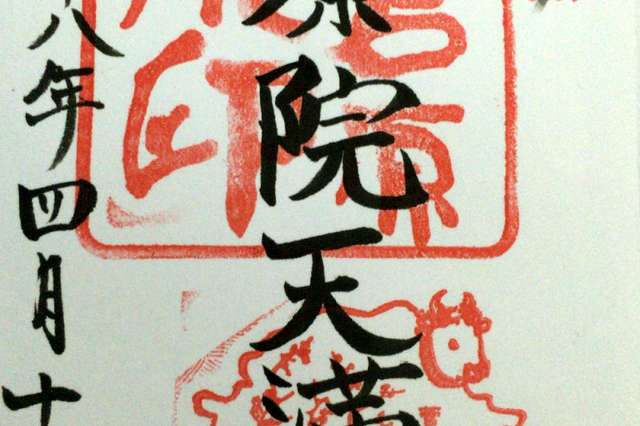 原院天満
八年四月十